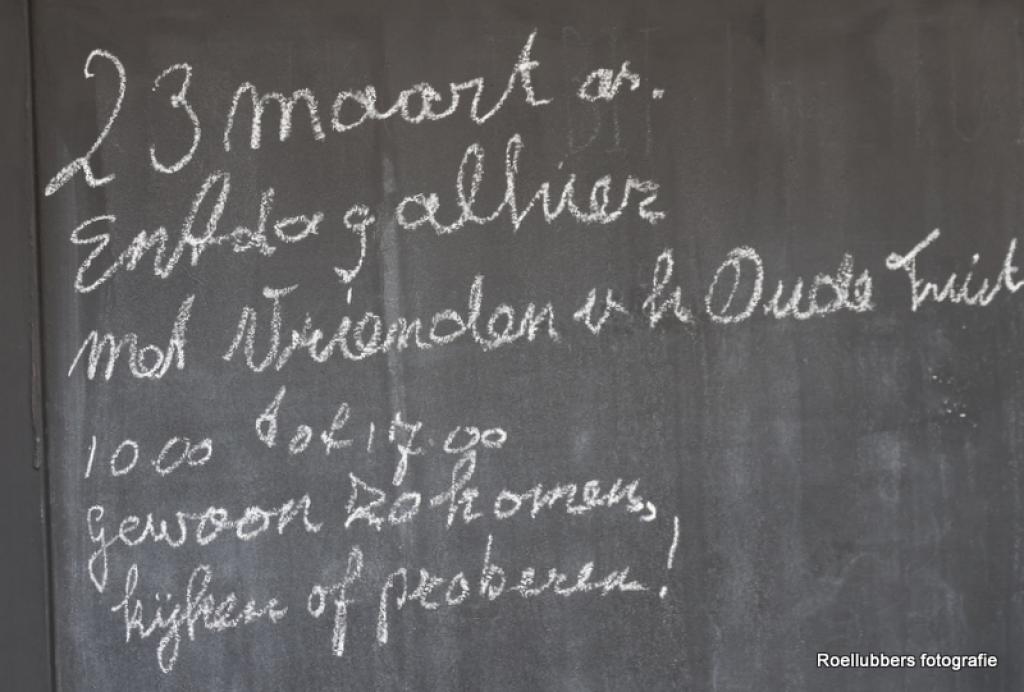 23 maart as.
Entdag alhier
met Vrienden v h Oude Fruit
10 00 tot 17.00
gewoon zo komen,
kijken of proberen!
Roellubbers fotografie